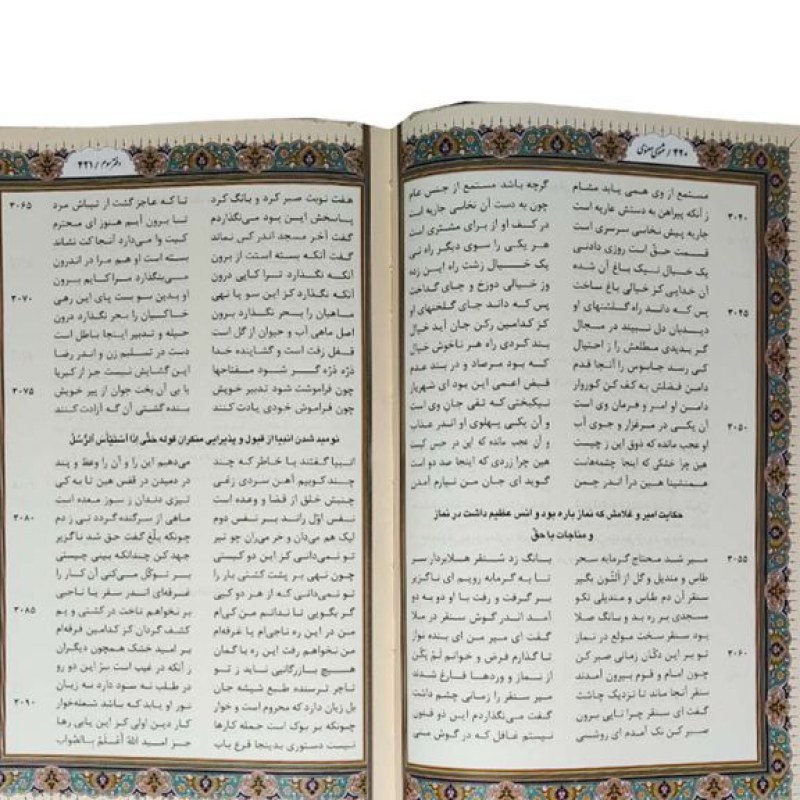 ۴۲۰ / مثنوی معنوی
مستمع از وی همی یابد مشام گرچه باشد مستمع از جنس عام
ز آنکه پیراهن به دستش عاریه است چون به دست آن نخاسی جاریه است ۳۰۴۰
جاریه پیش نخاسی سرسری است در کف او از برای مشتری است
قسمت حقّ است روزی دادنی هر یکی را سوی دیگر راه نی
یک خیال نیک باغ آن شده یک خیال زشت راه این زده
آن خدایی کز خیالی باغ ساخت وز خیالی دوزخ و جای گداخت
پس که داند راه گلشنهای او پس که داند جای گلخنهای او ۳۰۴۵
دیدبان دل نبیند در مجال کز کدامین رکن جان آید خیال
گر بدیدی مطلعش را ز احتیال بند کردی راه هر ناخوش خیال
کی رسد جاسوس را آنجا قدم که بود مرصاد و در بند عدم
دامن فضلش به کف کن کوروار قبض اعمی این بود ای شهریار
دامن او امر و فرمان وی است نیکبختی که تقی جان وی است
آن یکی در مرغزار و جوی آب و آن یکی پهلوی او اندر عذاب ۳۰۵۰
او عجب مانده که ذوق این ز چیست و آن عجب مانده که این در حبس کیست
هین چرا خشکی که اینجا چشمه‌هاست هین چرا زردی که اینجا صد دواست
همنشینا هین درآ اندر چمن گوید ای جان من نیارم آمدن
حکایت امیر و غلامش که نماز باره بود و انس عظیم داشت در نماز
و مناجات با حقّ
میر شد محتاج گرمابه سحر بانگ زد سُنقر هلا بردار سر ۳۰۵۵
طاس و مندیل و گل از آلتون بگیر تا به گرمابه رویم ای ناگزیر
سنقر آن دم طاس و مندیلی نکو بر گرفت و رفت با او دو به دو
مسجدی بر ره بد و بانگ صلا آمد اندر گوش سنقر در ملا
بود سنقر سخت مولع در نماز گفت ای میر من ای بنده نواز
تو بر این دکّان زمانی صبر کن تا گذارم فرض و خوانم لَمْ یکُن ۳۰۶۰
چون امام و قوم بیرون آمدند از نماز و وردها فارغ شدند
سنقر آنجا ماند تا نزدیک چاشت میر سنقر را زمانی چشم داشت
گفت ای سنقر چرا نایی برون گفت می‌نگذاردم این ذو فنون
صبر کن نک آمدم ای روشنی نیستم غافل که در گوش منی
دفتر سوم / ۴۲۱
هفت نوبت صبر کرد و بانگ کرد تا که عاجز گشت از تیباش مرد ۳۰۶۵
پاسخش این بود می‌نگذاردم تا برون آیم هنوز ای محترم
گفت آخر مسجد اندر کس نماند کیت وا می‌دارد آنجا کت نشاند
گفت آنکه بسته است از برون بسته است او هم مرا در اندرون
آنکه نگذارد ترا کآیی درون می‌بنگذارد مرا کآیم برون
آنکه نگذارد کز این سو پا نهی او بدین سو بست پای این رهی ۳۰۷۰
ماهیان را بحر نگذارد برون خاکیان را بحر نگذارد درون
اصل ماهی آب و حیوان از گل است حیله و تدبیر اینجا باطل است
قفل زفت است و گشاینده خدا دست در تسلیم زن و اندر رضا
ذرّه ذرّه گر شود مفتاحها این گشایش نیست جز از کبریا
چون فراموشت شود تدبیر خویش یا بی آن بخت جوان از پیر خویش ۳۰۷۵
چون فراموش خودی یادت کنند بنده گشتی آن گه آزادت کنند
نومید شدن انبیا از قبول و پذیرایی منکران قوله حتّی إذا اسْتَیأس الرُّسُلُ
انبیا گفتند با خاطر که چند می‌دهیم این را و آن را وعظ و پند
چند کوبیم آهن سردی ز غی در دمیدن در قفص هین تا به کی
جنبش خلق از قضا و وعده است تیزی دندان ز سوز معده است
نفس اوّل راند بر نفس دوم ماهی از سرگنده گردد نی ز دم ۳۰۸۰
لیک هم می‌دان و خر می‌ران چو تیر چونکه بلّغ گفت حق شد ناگزیر
تو نمی‌دانی کز این دو کیستی جهد کن چندانکه بینی چیستی
چون نهی بر پشت کشتی بار را بر توکّل می‌کنی آن کار را
تو نمی‌دانی که از هر دو کیی غرقه‌ای اندر سفر یا ناجیی
گر بگویی تا ندانم من کی‌ام بر نخواهم تاخت در کشتی و یم ۳۰۸۵
من در این ره ناجی‌ام یا غرقه‌ام کشف گردان کز کدامین فرقه‌ام
من نخواهم رفت این ره با گمان بر امید خشک همچون دیگران
هیچ بازرگانیی ناید ز تو ز آنکه در غیب است سرّ این دو رو
تاجر ترسنده طبع شیشه جان در طلب نه سود دارد نه زیان
بل زیان دارد که محروم است و خوار نور او یابد که باشد شعله‌خوار ۳۰۹۰
چونکه بر بوک است جمله کارها کار دین اولی کز این یابی رها
نیست دستوری بدینجا قرع باب جز امید اللهُ أعْلَمُ بالصَّواب